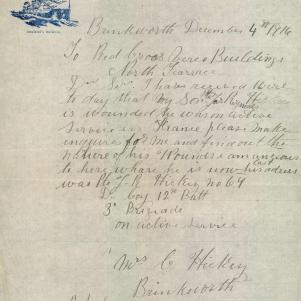 Brinkworth December 4th 1916
To Red Cross Buildings
North Terrace
Dr Sir I have received Wire
to day that my Son
is wounded he was on active
Service in France please make
inquire for me and find out the
nature of his Wounds i am anxious
to here where he is now his last adress
was Pte J R Hickey no 64
D Coy 12th Batt
3rd Brigade
on active service
Mrs C Hickey
Brinkworth